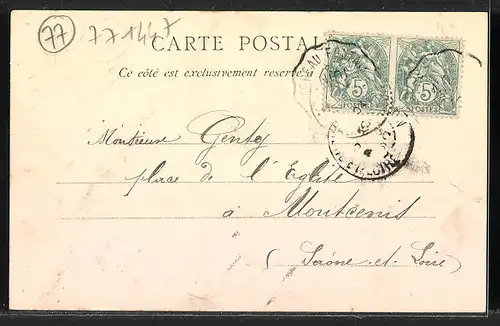 77 771447
CARTE POSTALE
Ce côté est exclusivement réservé à
5c 5c
POSTES POSTES
Montsieur Genty
place de l'Eglise
à Montcenis
(Saône-et-Loire)